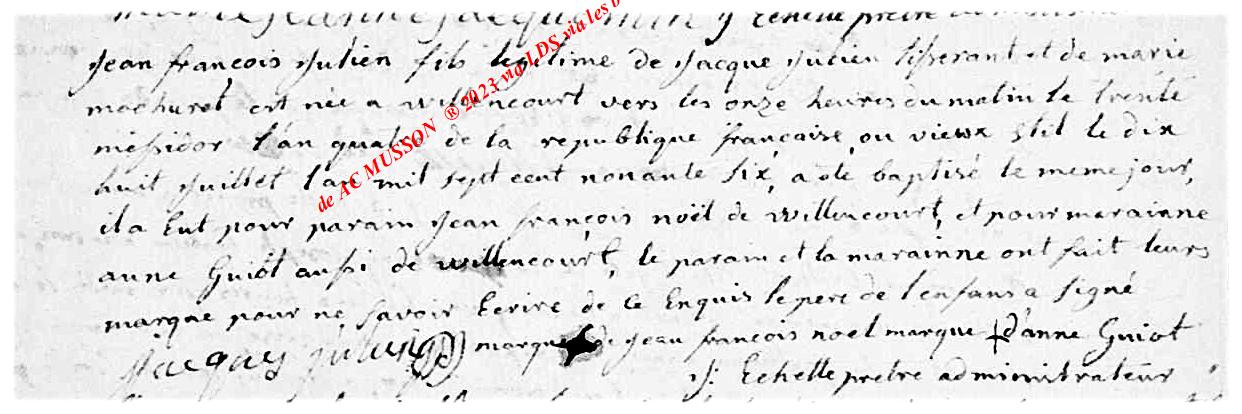 marie jeanne jacquemin J Echelle pretre
Jean francois Julien fils legitime de Jacque Julien tisserant et de marie
machuret est née a willencourt vers les onze heures du matin le trente
messidor l'an quatre de la republique françaixe, ou vieux stil le dix
huit Juillet l'an mil sept cent nonante six, a ete baptisé le meme jour,
il a Eut pour parain Jean françois noël de willencourt, et pour marainne
anne Guiot aussi de willencourt, le parain et la marainne ont fait leurs
marque pour ne savoir Ecrire de ce Enquis le pere de l'enfans a signé
Jacques julien marque de Jean francois noel marque d'anne Guiot
J: Echelle pretre administrateur
de AC MUSSON ® 2023 via LDS via les b